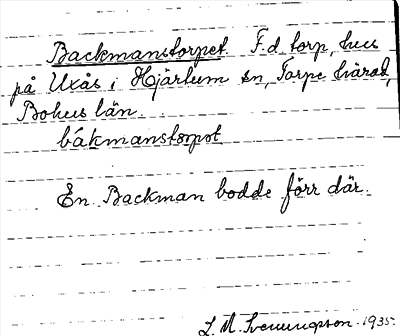 Backmanstorpet. F.d. torp, hus
på Uxås i Hjärtum sn, Torpe härad,
Bohus län.
båkmanstorpot
En Backman bodde förr där.
L. M. Svenungsson. 1935.